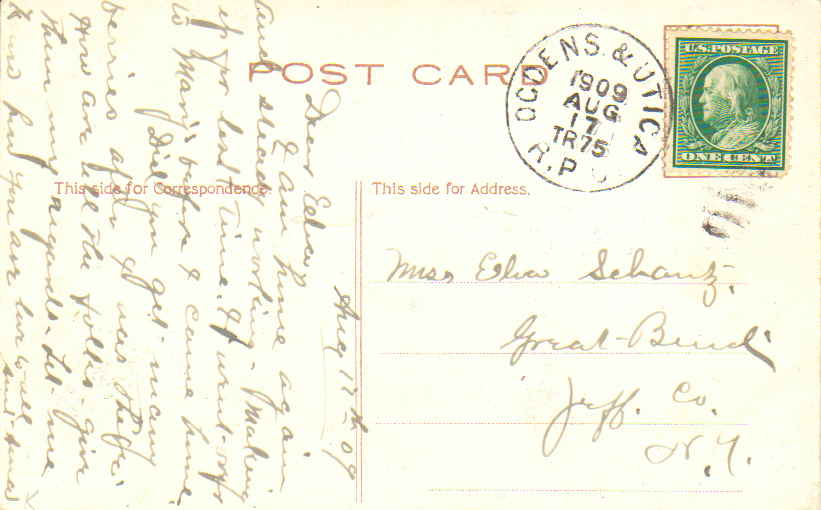 POST CARD
OGDENS. & UTICA
1909
AUG
17
TR75
R.P.O
U.S. POSTAGE
ONE CENT
This side for Correspondence.
This side for Address.
Miss Elva Schantz.
Great-Bend
Jeff. Co.
N.Y.
Aug 17th 09
Dear Elva
I am home again
and steady working - Making
up for lost time. I went over
to Mary's before I came home.
Did you get many
berries after I was there.
How are all the folks. give
them my regards. Let me
know how you are